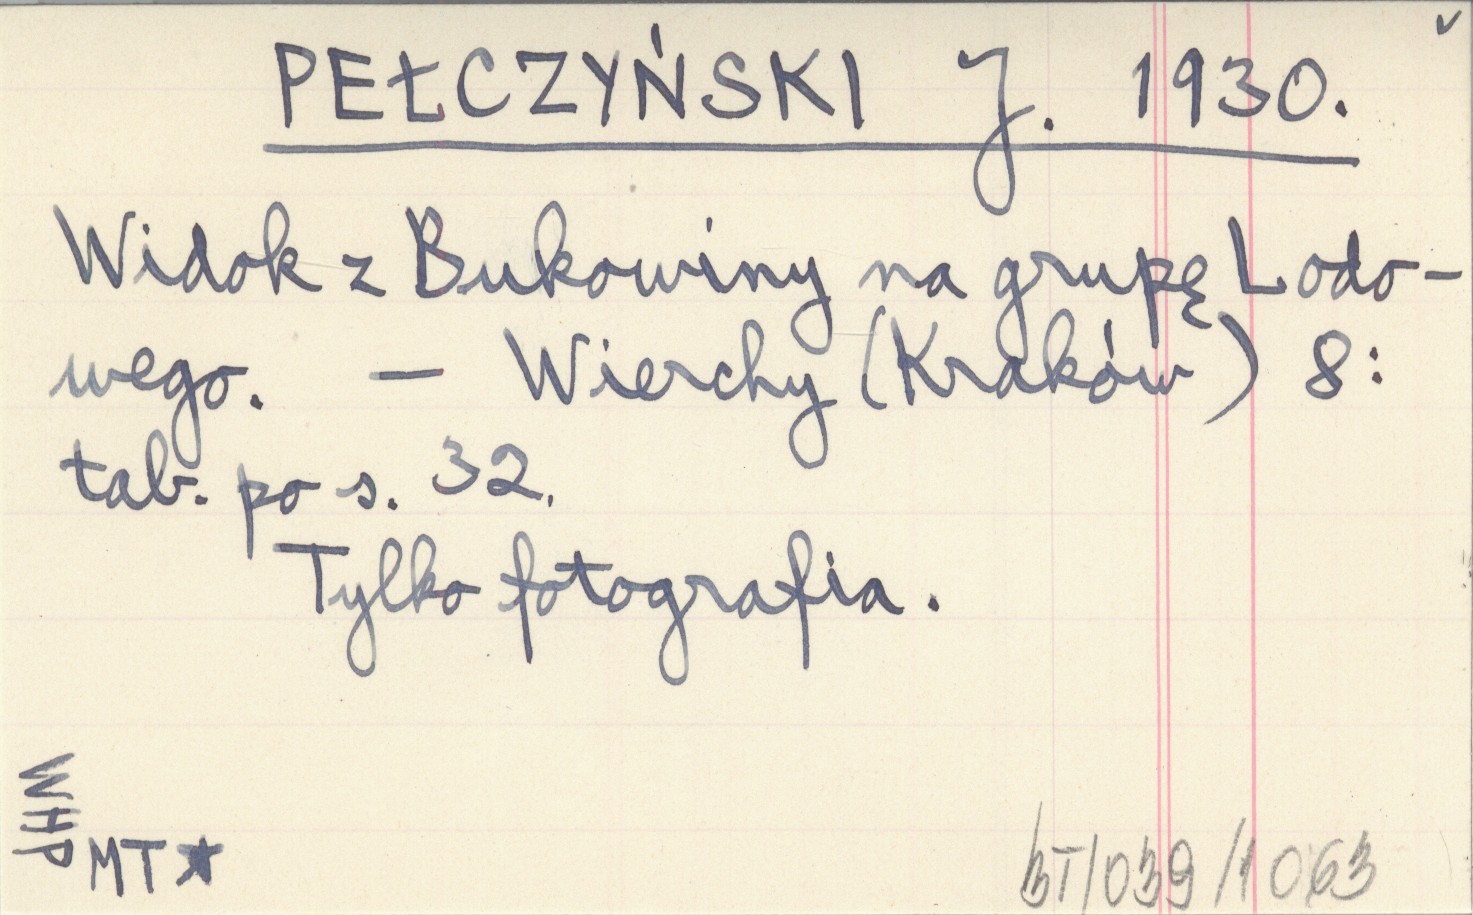 PEŁCZYŃSKI J. 1930.
Widok z Bukowiny na grupę Lodo-
wego. — Wierchy (Kraków) 8:
tab. po s. 32.
Tylko fotografia.
WHP
MT★
BT/039/1063